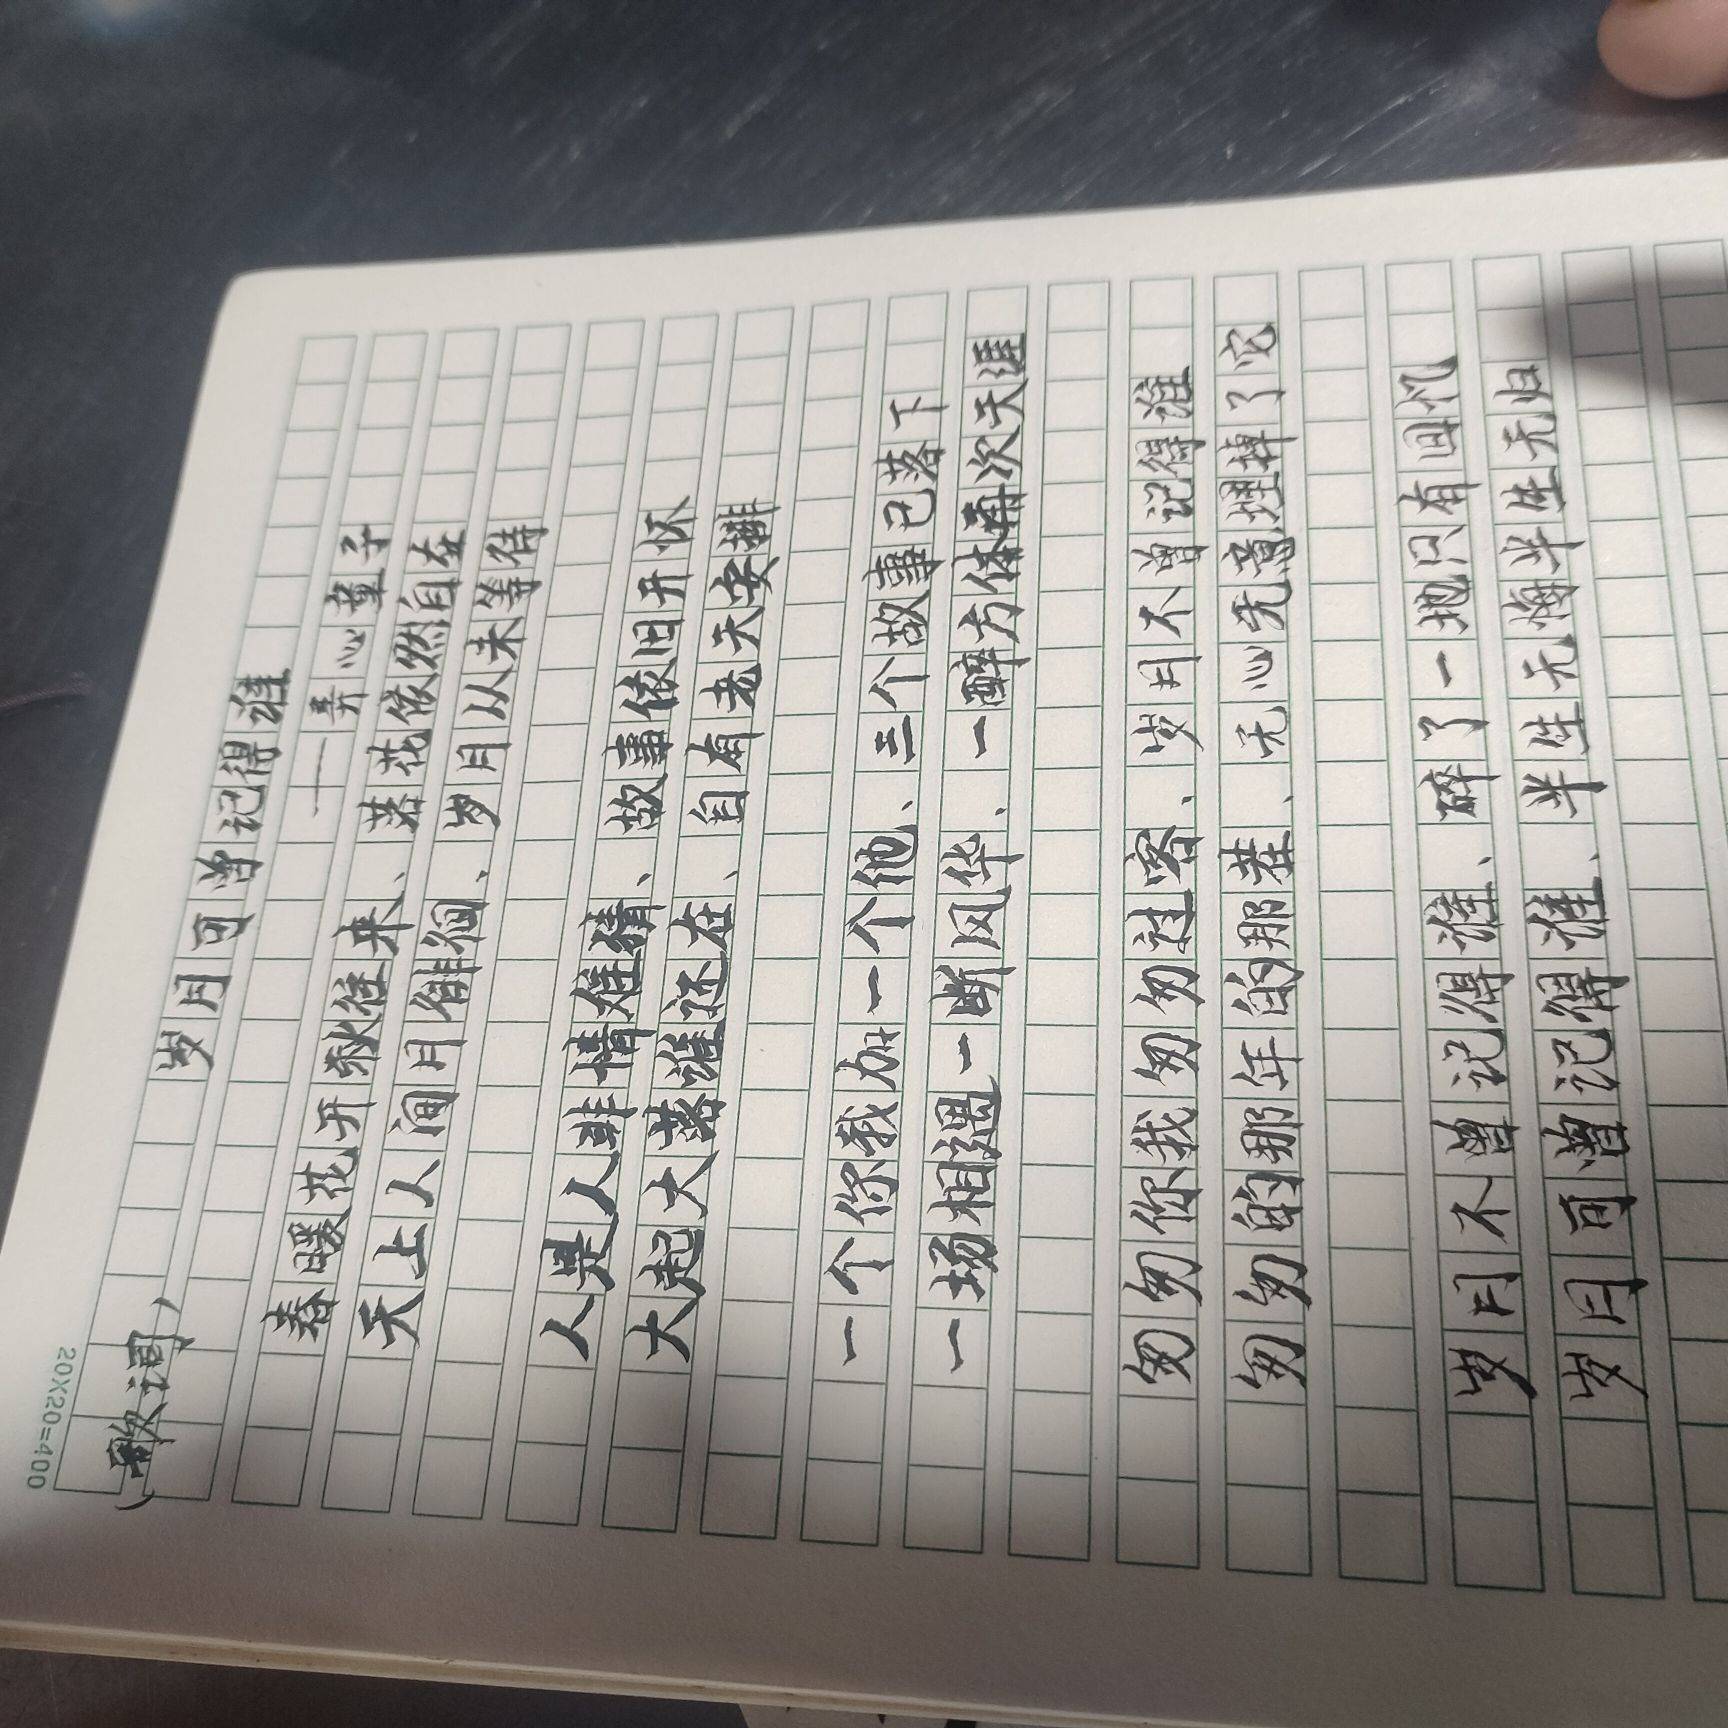 20X20=400
(歌词)
岁月可曾记得谁
——弄心童子
春暖花开秋往来、落花依然自在
天上人间月徘徊、岁月从未等待
人是人非情难猜、故事依旧开怀
大起大落谁还在、自有老天安排
一个你我加一个他、三个故事已落下
一场相遇一断风华、一醉方休再次天涯
匆匆你我匆匆过客、岁月不曾记得谁
匆匆的那年的那巷、无心无意埋掉了它
岁月不曾记得谁、碎了一地只有回忆
岁月可曾记得谁、半生无悔半生无归